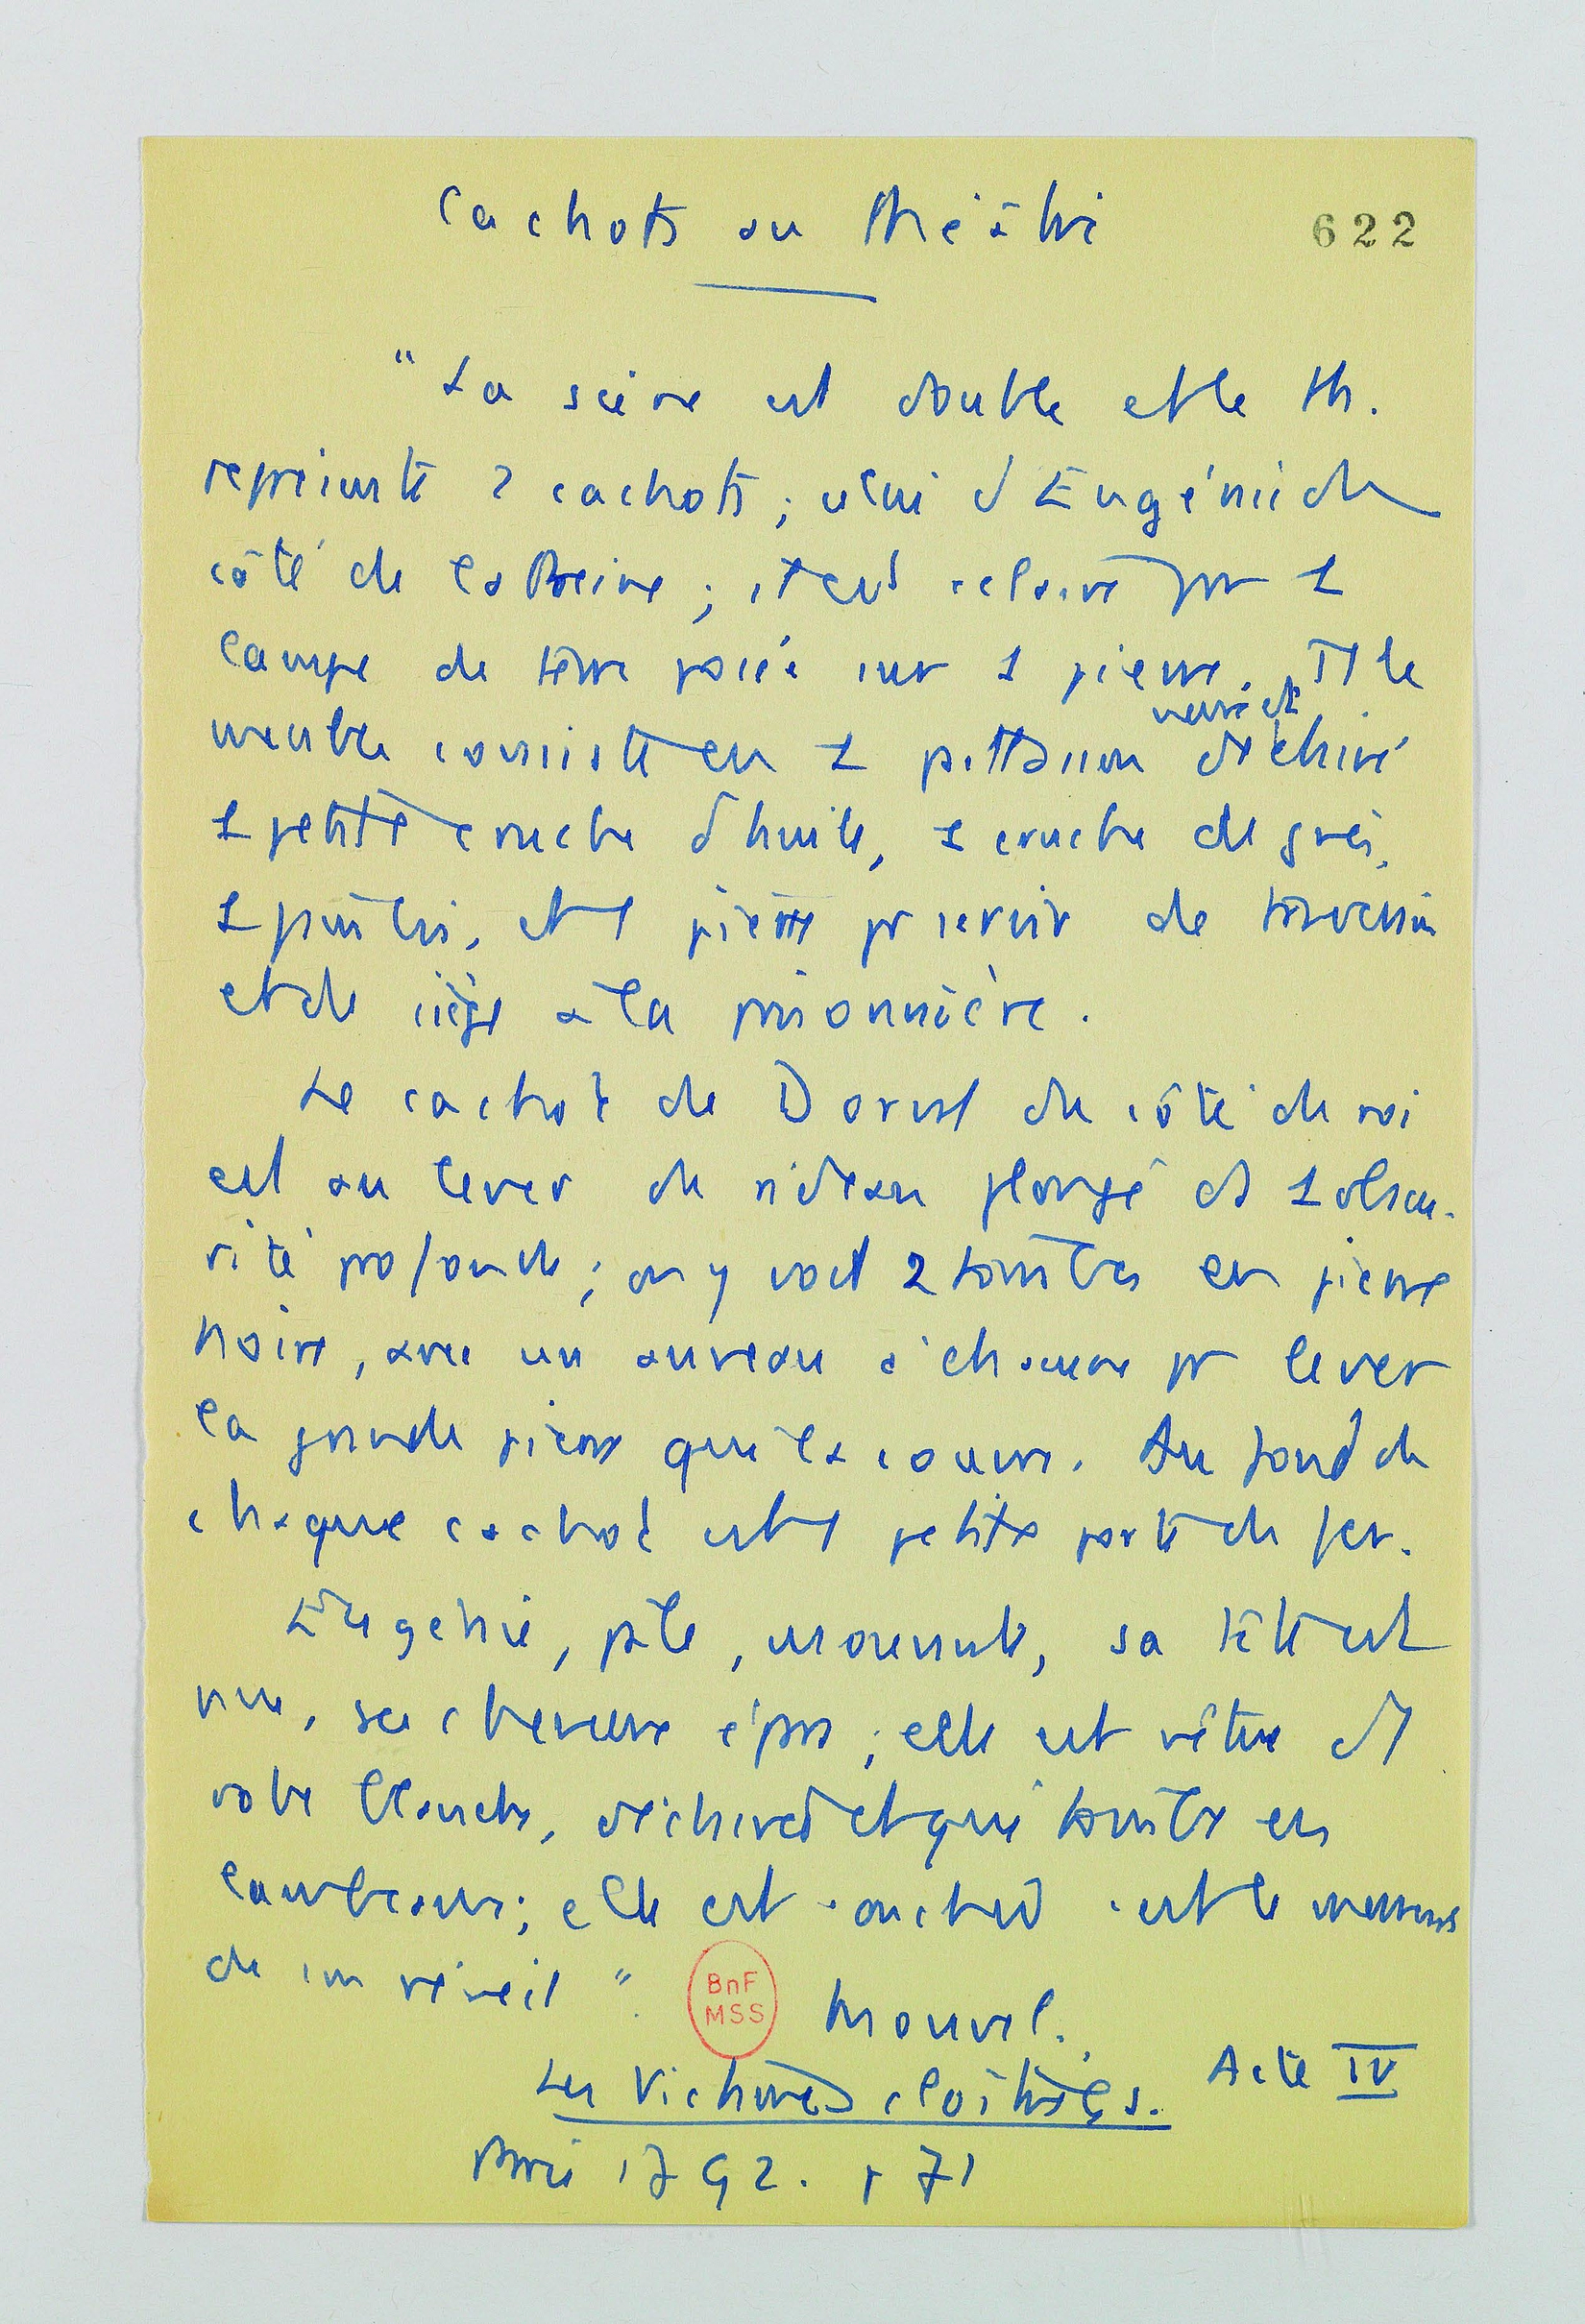 Cachots au théâtre
622
"La scène est double et le th.
représente 2 cachots ; celui d'Eugénie du
côté de la Reine ; il est éclairé par 1
lampe de terre posée sur 1 pierre. Tt le
meuble consiste en 1 paillasson natté et
déchiré
1 petite cruche d'huile, 1 cruche de grès,
1 pain bis, et 1 pierre pr servir de traversin
et de siège à la prisonnière.
Le cachot de Dorval du côté du roi
est au lever du rideau plongé ds 1 obscu-
rité profonde ; on y voit 2 tombes en pierre
noire, avec un anneau à chacune pr lever
la grande pierre qui la couvre. Au fond de
chaque cachot est 1 petite porte de fer.
Eugénie, pâle, mourante, sa tête est
nue, ses cheveux épars ; elle est vêtue d'1
robe blanche, déchirée et qui tombe en
lambeaux ; elle est couchée ; c'est le moment
de son réveil ".
BnF
MSS
Monvel.
Les Victimes cloîtrées. Acte IV
Paris 1792. p 71